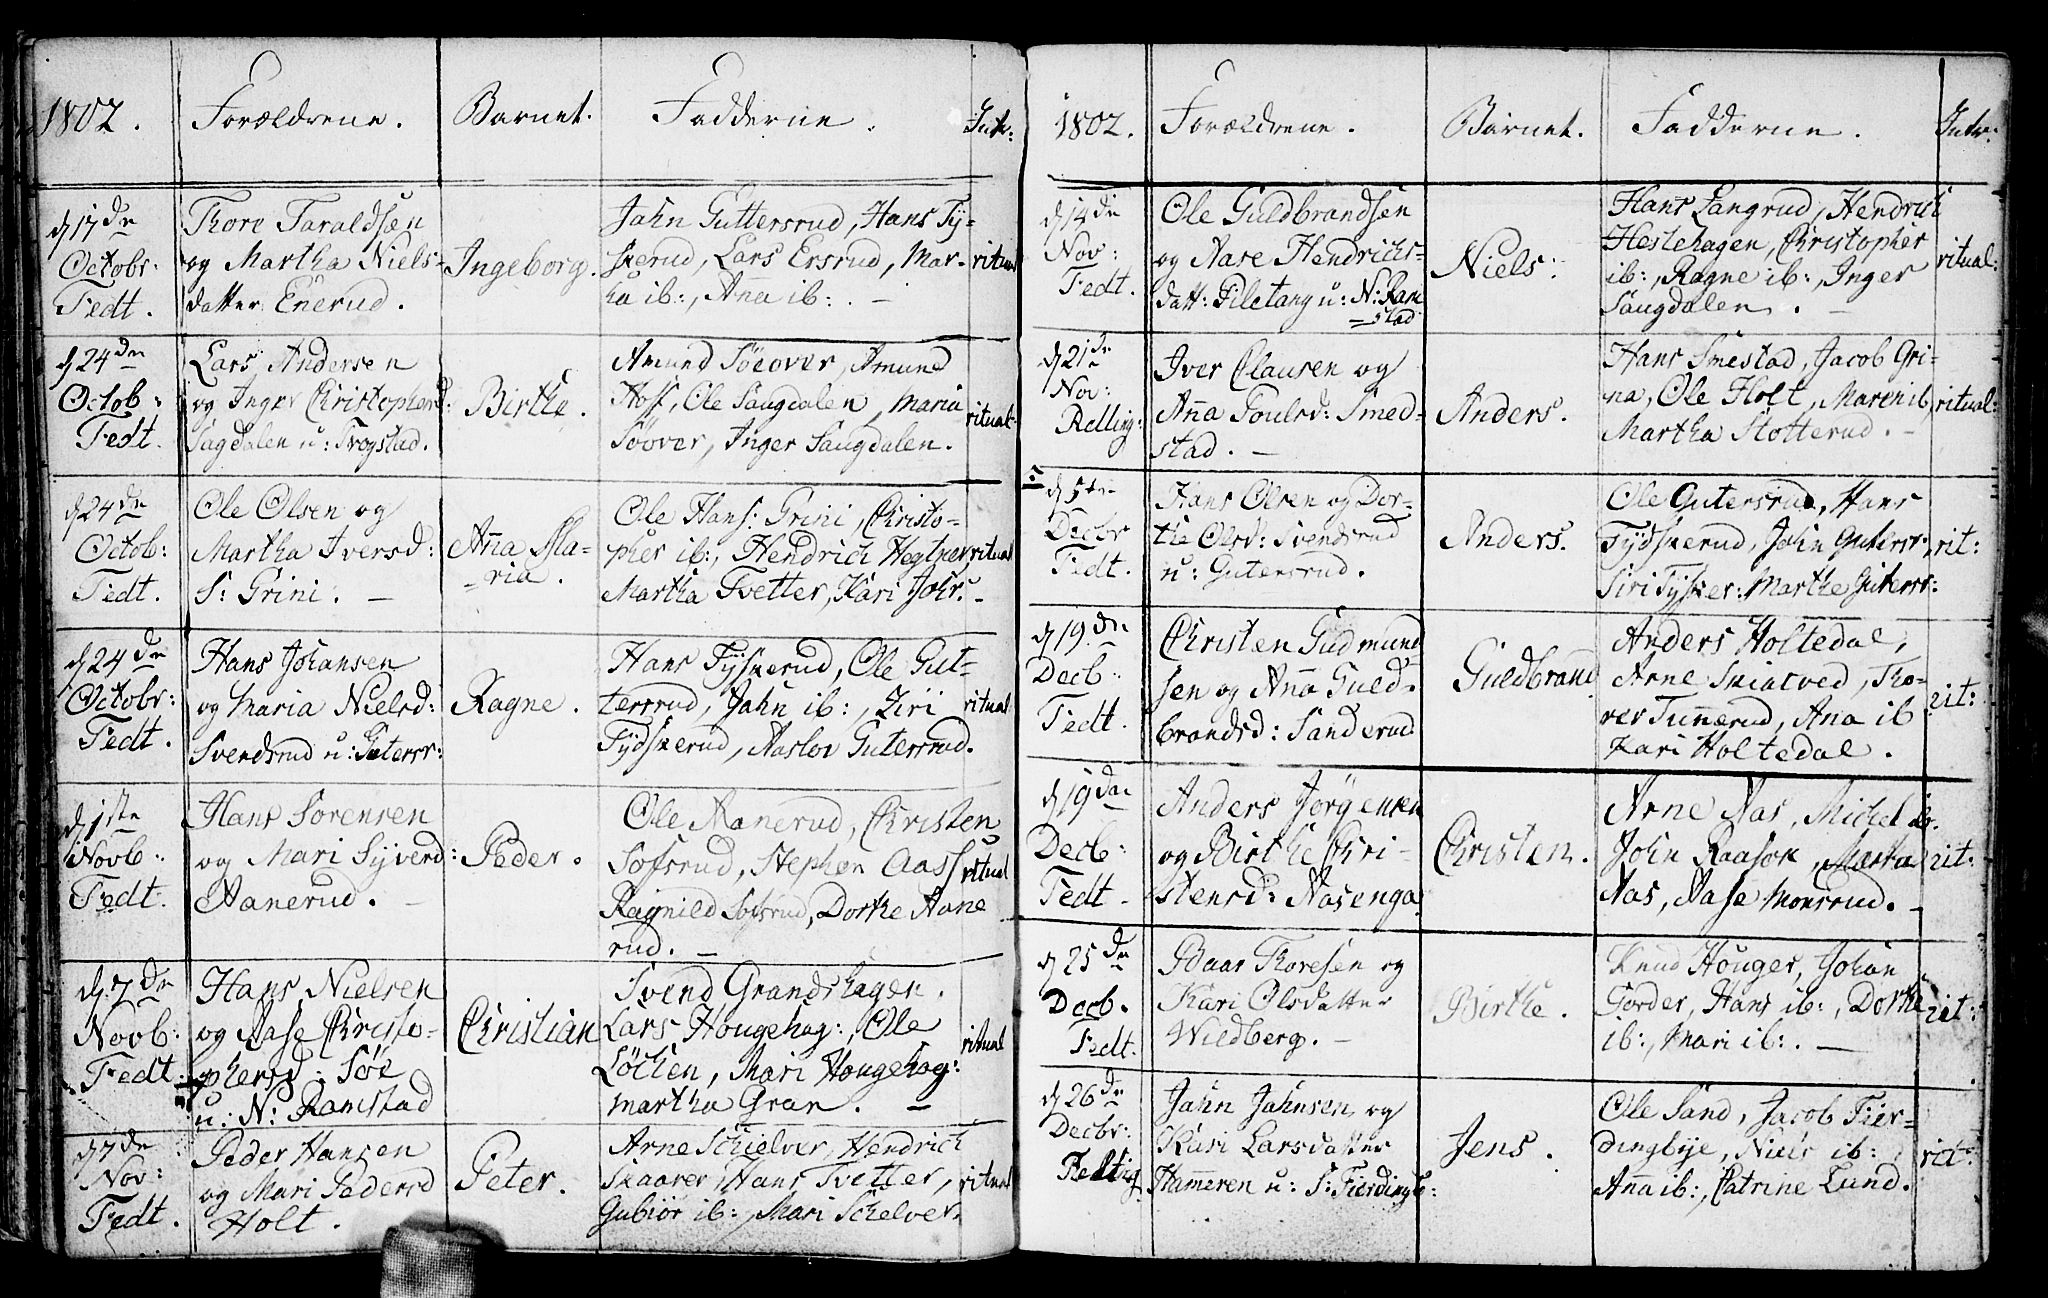 1802. Forældrene. Barnet. Fadderne. Intr:
d 17de
Octobr:
Fedt.
Thore Taraldsen
og Martha Niels-
datter Enerud.
Ingeborg.
Jahn Guttersrud, Hans Ty-
skerud, Lars Ersrud, Mar-
ha ib:, Ana ib: . —
ritual
d 24de
Octob:
Fedt.
Lars Andersen
og Inger Christophersd:
Sagdalen u: Frogstad.
Birthe.
Amund Söeover, Amund
Hoff, Ole Saugdalen, Maria
Söover, Inger Saugdalen.
ritual
d 24de
Octob:
Fedt.
Ole Olsen og
Martha Iversd:
S: Grini. —
Anna Ma-
ria.
Ole Hans: Grini, Christo-
pher ib:, Hendrich Hegtner
Martha Tvetter, Kari Johr. -
ritual
d 24de
Octobr:
Fedt.
Hans Johansen
og Maria Nielsd:
Svendsrud u: Gutersr:
Ragne.
Hans Tyskerud, Ole Gut-
tersrud, Jahn ib:, Ziri
Tydskerud, Aaslov Gutersrud.
ritual
d 1ste
Novb:
Fedt.
Hans Sorensen
og Mari Syverd:
Aanerud. —
Peder.
Ole Aanerud, Christen
Sofsrud, Stephen Aass
Ragnild Sofsrud, Dorthe Aane
rud. —
ritual
d. 7de
Novb:
Fedt.
Hans Nielsen
og Aase Christo-
phersd: Söe
u: N: Ramstad
Christian
Svend Grandshagen.
Lars Hougehag:, Ole
Löcken, Mari Hougehag:
Martha Gran. —
ritual
d 7de
Nov:
Fedt.
Peder Hansen
og Mari Pedersd
Holt.
Peter.
Arne Schielver, Hendrich
Skaarer, Hans Tvetter,
Gubiör ib:, Mari Schelver.
ritual
1802. Forældrene. Barnet. Fadderne. Intr:
d 14de
Nov:
Fedt.
Ole Guldbrandsen
og Aase Hendrichs-
datt: Filetang u: N: Ram
stad
Niels.
Hans Langrud, Hendrich
Hestehagen, Christopher
ib:, Ragne ib:, Inger
Saugdalen. —
ritual:
d 21de
Nov:
Relling:
Iver Clausen og
Anna Poulsd: Smed-
stad. —
Anders.
Hans Smestad, Jacob Gri-
na, Ole Holt, Maren ib,
Martha Stotterud. —
ritual:
d 5te
Decbr
Fedt.
Hans Olsen og Dor-
the Olsd: Svendsrud
u: Gutersrud.
Anders.
Ole Gutersrud, Hans
Tydskerud, John Gutersr:
Siri Tysker: Marthe Gutersr:
rit:
d 19de
Decb:
Fedt.
Christen Gudmund
sen og Anna Guld-
brandsd: Sanderud
Guldbrand
Anders Holtedal,
Arne Skiatved, Tho-
rer Tunnerud, Ana ib
Kari Holtedal.
rit:
d 19de
Decb:
Fedt.
Anders Jörgensen
og Birthe Chri-
stensd: Aasenga
Christen.
Arne Aas, Michel ib.
John Raasok, Martha
Aas, Aase Monsrud. —
rit:
d 25de
Decb.
Fedt.
Baar Thoresen og
Kari Olsdatter
Wildberg. —
Birthe.
Knud Houger, Johan
Forder, Hans ib:, Dorthe
ib:, Mari ib: . —
rit:
d 26de
Decbr:
Jahn Jahnsen og
Kari Larsdatter
Hammeren u: S: Fierdingb:
Jens.
Ole Sand, Jacob Fier-
dingbye, Niels ib:,
Ana ib:, Catrine Lund.
rit: